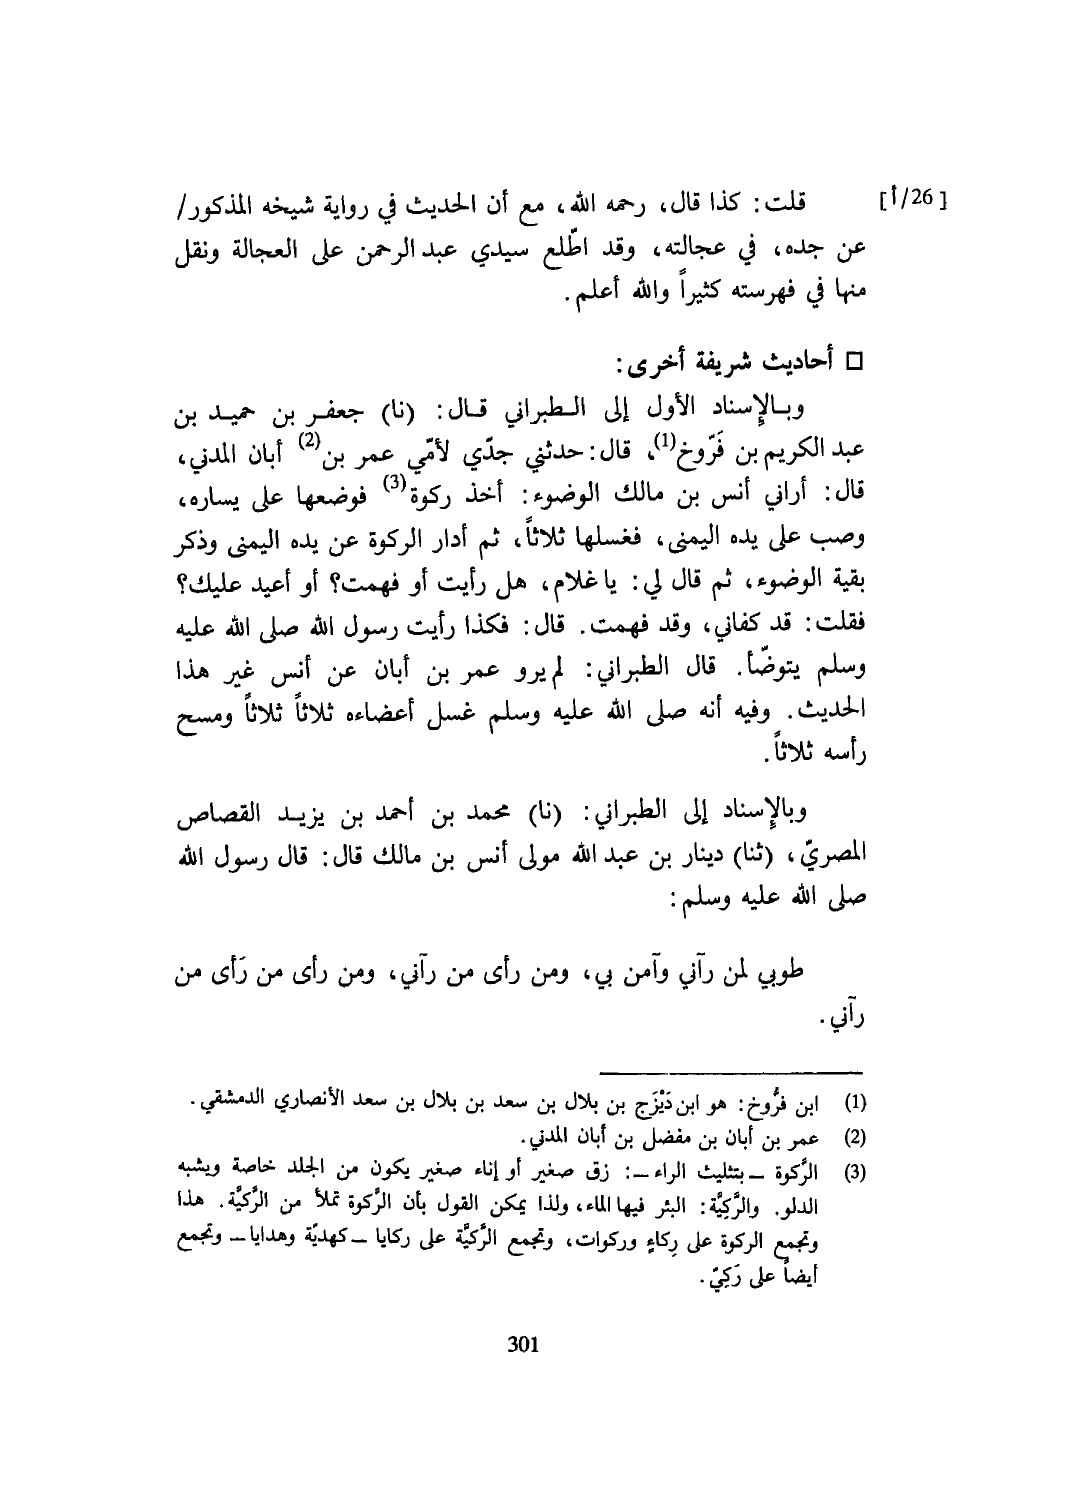 [26/أ] قلت: كذا قال، رحمه الله، مع أن الحديث في رواية شيخه المذكور/
عن جده، في عجالته، وقد اطّلع سيدي عبد الرحمن على العجالة ونقل
منها في فهرسته كثيراً والله أعلم.
□ أحاديث شريفة أخرى:
وبالإسناد الأول إلى الطبراني قال: (نا) جعفر بن حميد بن
عبد الكريم بن فَرّوخ(1)، قال: حدثني جدّي لأمّي عمر بن(2) أبان المدني،
قال: أراني أنس بن مالك الوضوء: أخذ ركوة(3) فوضعها على يساره،
وصب على يده اليمنى، فغسلها ثلاثاً، ثم أدار الركوة عن يده اليمنى وذكر
بقية الوضوء، ثم قال لي: يا غلام، هل رأيت أو فهمت؟ أو أعيد عليك؟
فقلت: قد كفاني، وقد فهمت. قال: فكذا رأيت رسول الله صلى الله عليه
وسلم يتوضّأ. قال الطبراني: لم يرو عمر بن أبان عن أنس غير هذا
الحديث. وفيه أنه صلى الله عليه وسلم غسل أعضاءه ثلاثاً ثلاثاً ومسح
رأسه ثلاثاً.
وبالإسناد إلى الطبراني: (نا) محمد بن أحمد بن يزيد القصاص
المصريّ، (ثنا) دينار بن عبد الله مولى أنس بن مالك قال: قال رسول الله
صلى الله عليه وسلم:
طوبي لمن رآني وآمن بي، ومن رأى من رآني، ومن رأى من رَأى من
رآني.
(1) ابن فرُّوخ: هو ابن دَيْزَج بن بلال بن سعد بن بلال بن سعد الأنصاري الدمشقي.
(2) عمر بن أبان بن مفضل بن أبان المدني.
(3) الرَّكوة – بتثليث الراء –: زق صغير أو إناء صغير يكون من الجلد خاصة ويشبه
الدلو. والرَّكِيَّة: البئر فيها الماء، ولذا يمكن القول بأن الرَّكوة تملأ من الرَّكيَّة. هذا
وتجمع الركوة على رِكاءٍ وركوات، وتجمع الرَّكيَّة على ركايا – كهديّة وهدايا – وتجمع
أيضاً على رَكِيّ.
301